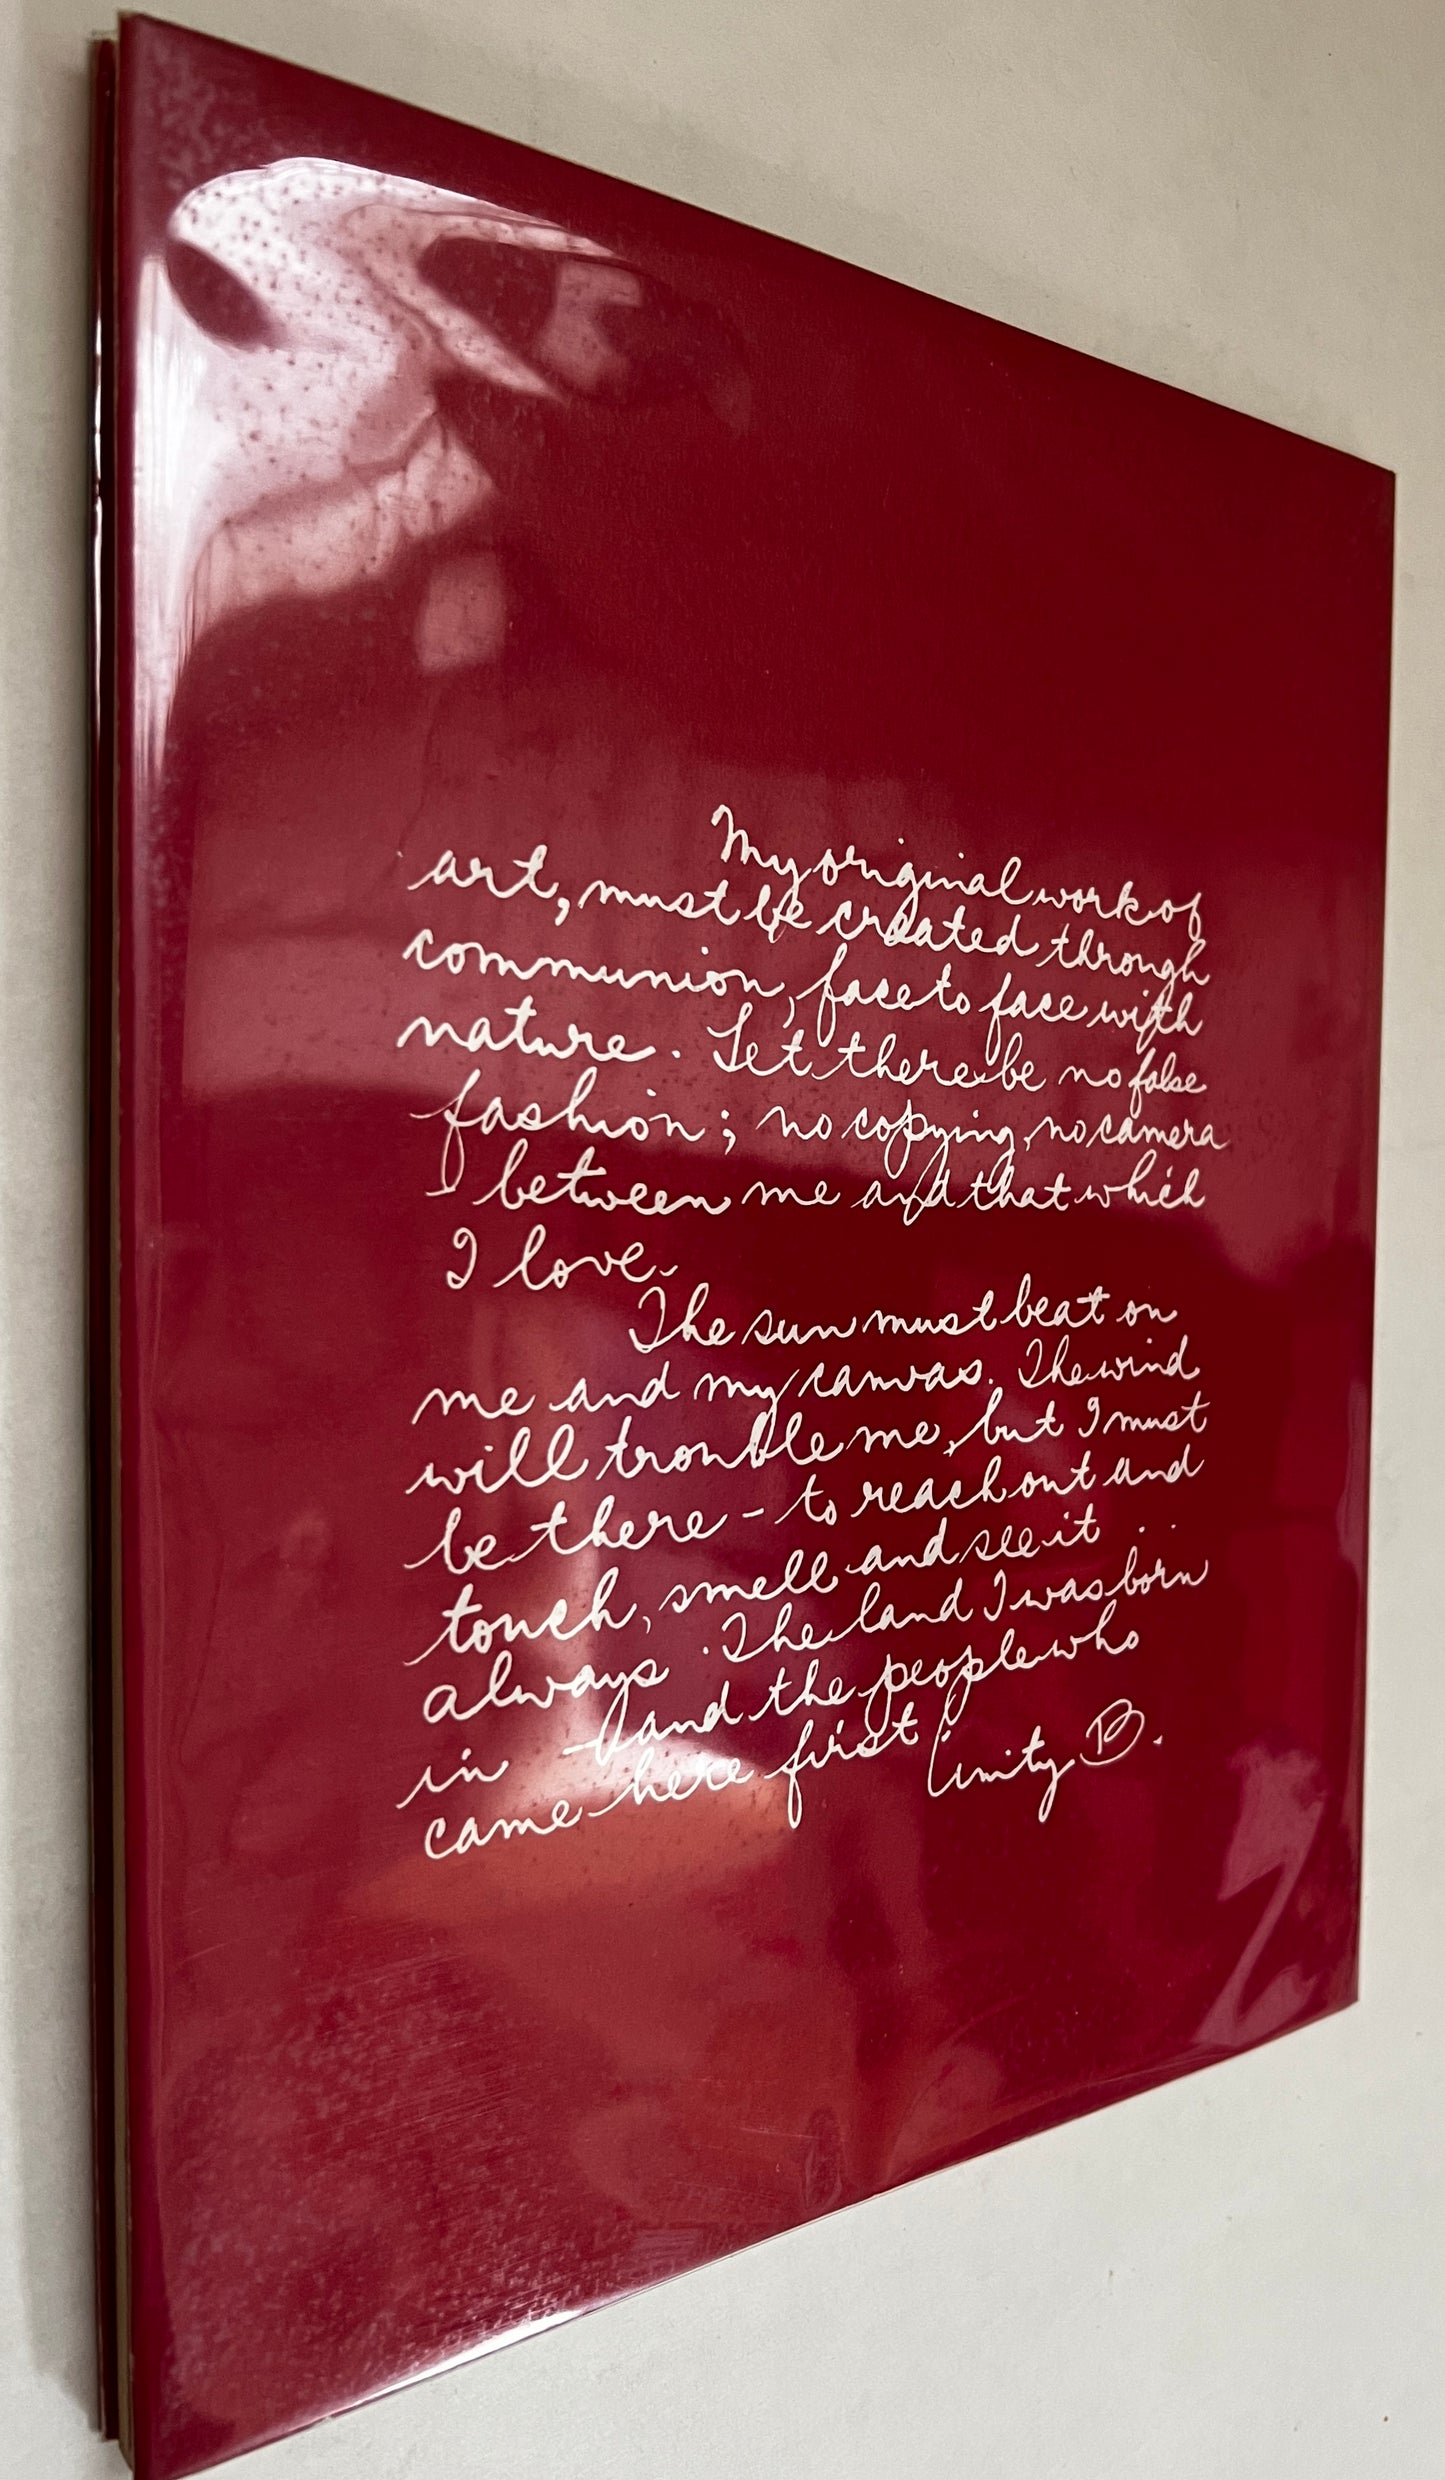 My original work of
art, must be created through
communion, face to face with
nature. Let there be no false
fashion; no copying, no camera
between me and that which
I love.
The sun must beat on
me and my canvas. The wind
will trouble me, but I must
be there - to reach out and
touch, smell and see it ..
always. The land I was born
in - and the people who
came here first Unity B.